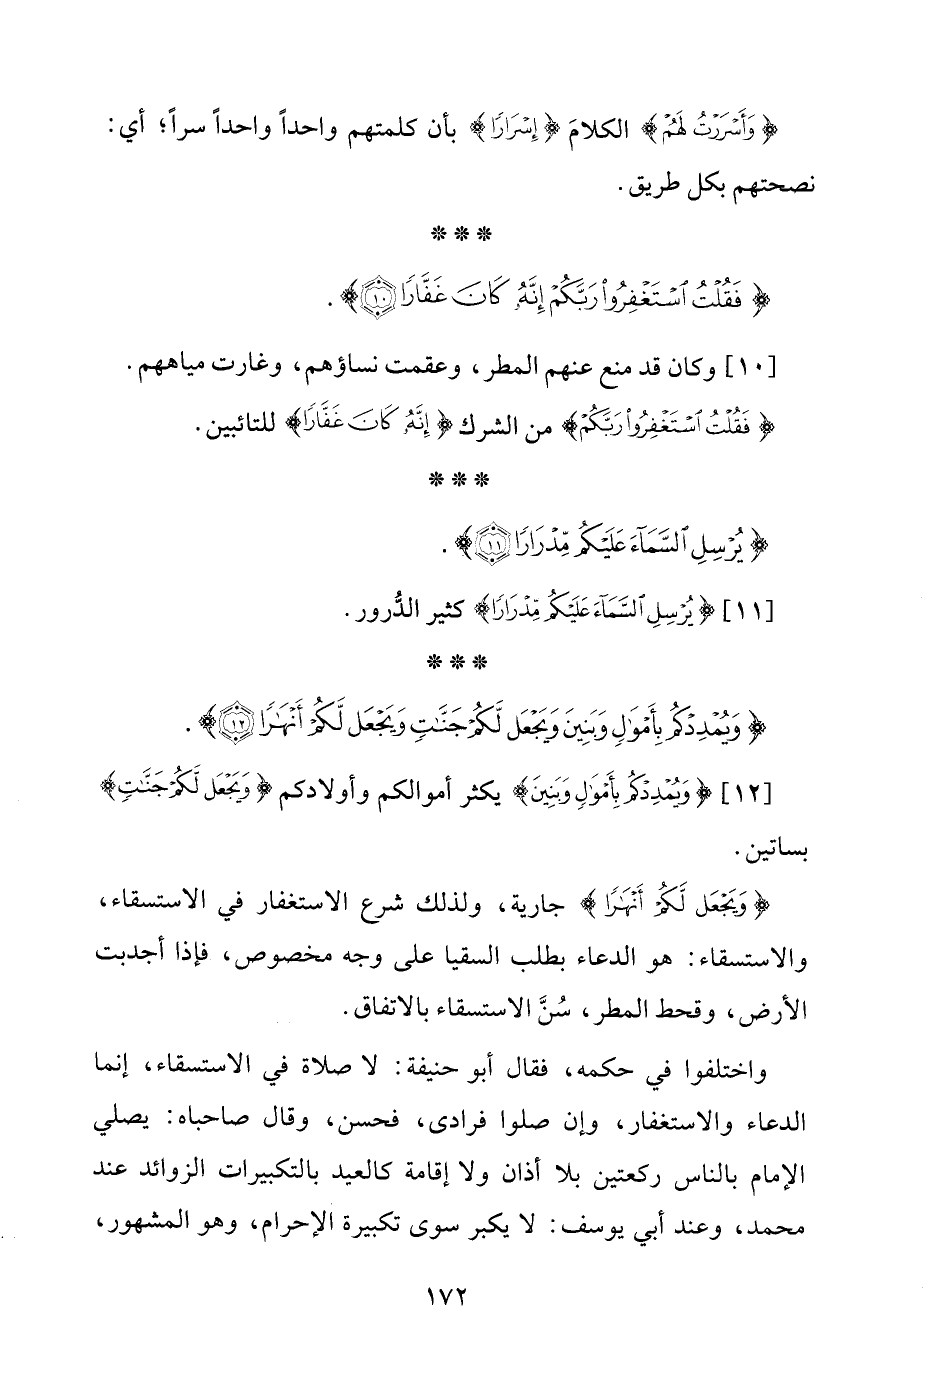 ﴿ وَأَسْرَرْتُ لَهُمْ ﴾ الكلامَ ﴿ إِسْرَارًا ﴾ بأن كلمتهم واحداً واحداً سراً؛ أي:
نصحتهم بكل طريق.
* * *
﴿ فَقُلْتُ ٱسْتَغْفِرُوا۟ رَبَّكُمْ إِنَّهُۥ كَانَ غَفَّارًا ۝١٠ ﴾ .
[١٠] وكان قد منع عنهم المطر، وعقمت نساؤهم، وغارت مياههم.
﴿ فَقُلْتُ ٱسْتَغْفِرُوا۟ رَبَّكُمْ ﴾ من الشرك ﴿ إِنَّهُۥ كَانَ غَفَّارًا ﴾ للتائبين.
* * *
﴿ يُرْسِلِ ٱلسَّمَآءَ عَلَيْكُم مِّدْرَارًا ۝١١ ﴾ .
[١١] ﴿ يُرْسِلِ ٱلسَّمَآءَ عَلَيْكُم مِّدْرَارًا ﴾ كثير الدُّرور.
* * *
﴿ وَيُمْدِدْكُم بِأَمْوَٰلٍ وَبَنِينَ وَيَجْعَل لَّكُمْ جَنَّـٰتٍ وَيَجْعَل لَّكُمْ أَنْهَـٰرًا ۝١٢ ﴾ .
[١٢] ﴿ وَيُمْدِدْكُم بِأَمْوَٰلٍ وَبَنِينَ ﴾ يكثر أموالكم وأولادكم ﴿ وَيَجْعَل لَّكُمْ جَنَّـٰتٍ ﴾
بساتين.
﴿ وَيَجْعَل لَّكُمْ أَنْهَـٰرًا ﴾ جارية، ولذلك شرع الاستغفار في الاستسقاء،
والاستسقاء: هو الدعاء بطلب السقيا على وجه مخصوص، فإذا أجدبت
الأرض، وقحط المطر، سُنَّ الاستسقاء بالاتفاق.
واختلفوا في حكمه، فقال أبو حنيفة: لا صلاة في الاستسقاء، إنما
الدعاء والاستغفار، وإن صلوا فرادى، فحسن، وقال صاحباه: يصلي
الإمام بالناس ركعتين بلا أذان ولا إقامة كالعيد بالتكبيرات الزوائد عند
محمد، وعند أبي يوسف: لا يكبر سوى تكبيرة الإحرام، وهو المشهور،
١٧٢